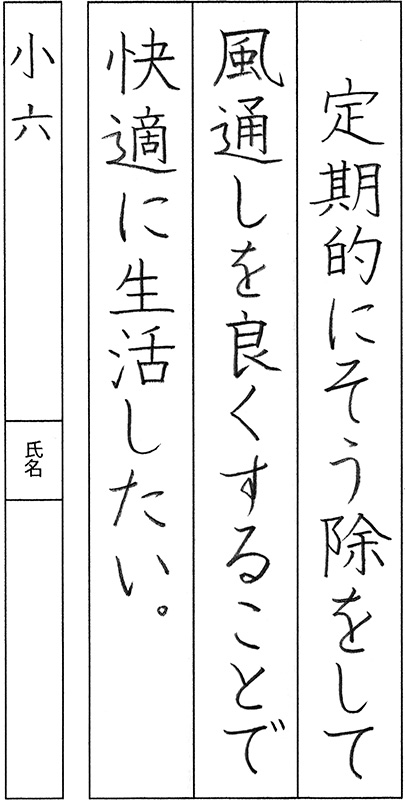 定期的にそう除をして
風通しを良くすることで
快適に生活したい。
小六
氏名